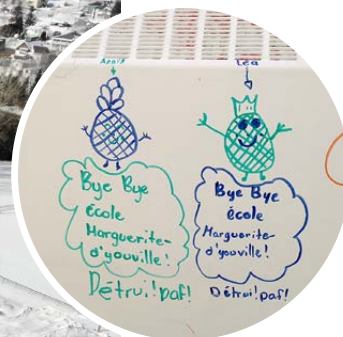 Léa
Bye Bye
école
Marguerite-
d'youville!
Détrui!paf!
Bye Bye
école
Marguerite-
d'youville!
Détrui!paf!